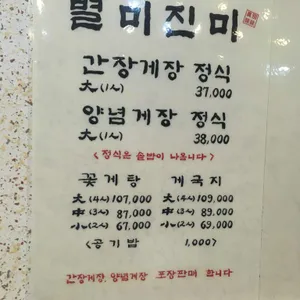 별미진미
간장게장 정식
大(1人) 37,000
양념게장 정식
大(1人) 38,000
<정식은 솥밥이 나옵니다>
꽃게탕 게국지
大(4人) 107,000 大(4人) 109,000
中(3人) 87,000 中(3人) 89,000
小(2人) 67,000 小(2人) 69,000
<공기밥 1,000>
간장게장, 양념게장 포장판매 합니다